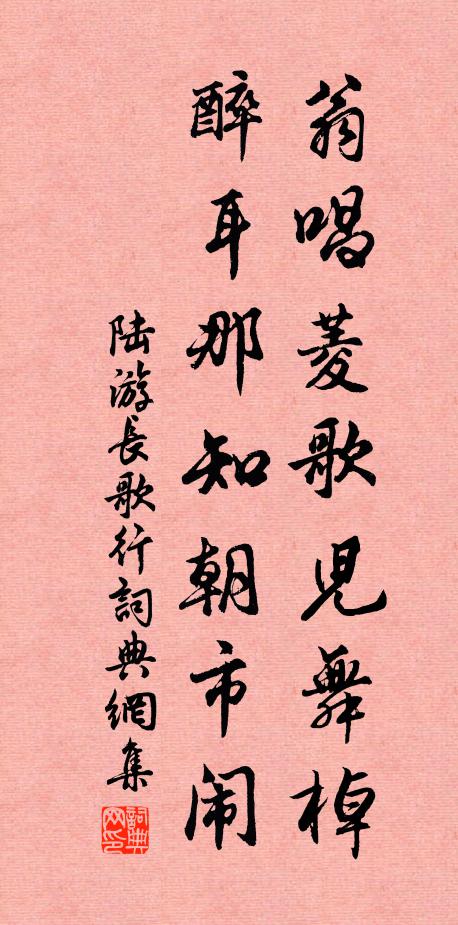 翁唱菱歌兒舞棹
醉耳那知朝市闹
陆游長歌行詞典網集
詞典网印